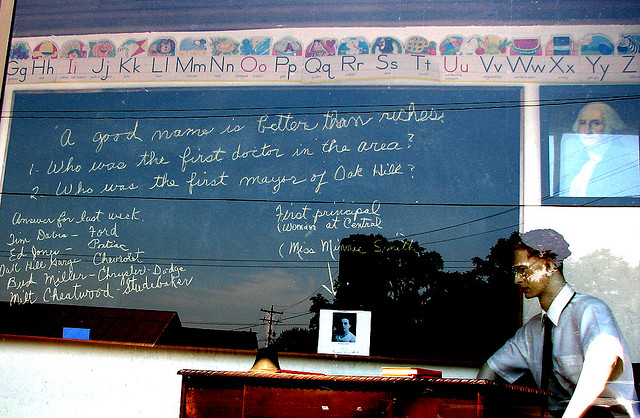 Gg Hh Ii Jj Kk Ll Mm Nn Oo Pp Qq Rr Ss Tt Uu Vv Ww Xx Yy Z
A good name is better than riches.
1. Who was the first doctor in the area?
2. Who was the first mayor of Oak Hill?
Answer for last week.
Jim Davis - Ford
Ed Jones - Pontiac
Oak Hill Garge - Chevrolet
Bud Miller - Chrysler-Dodge
Milt Cheatwood - Studebaker
First principal
(woman) at Central
(Miss Minnie Smith